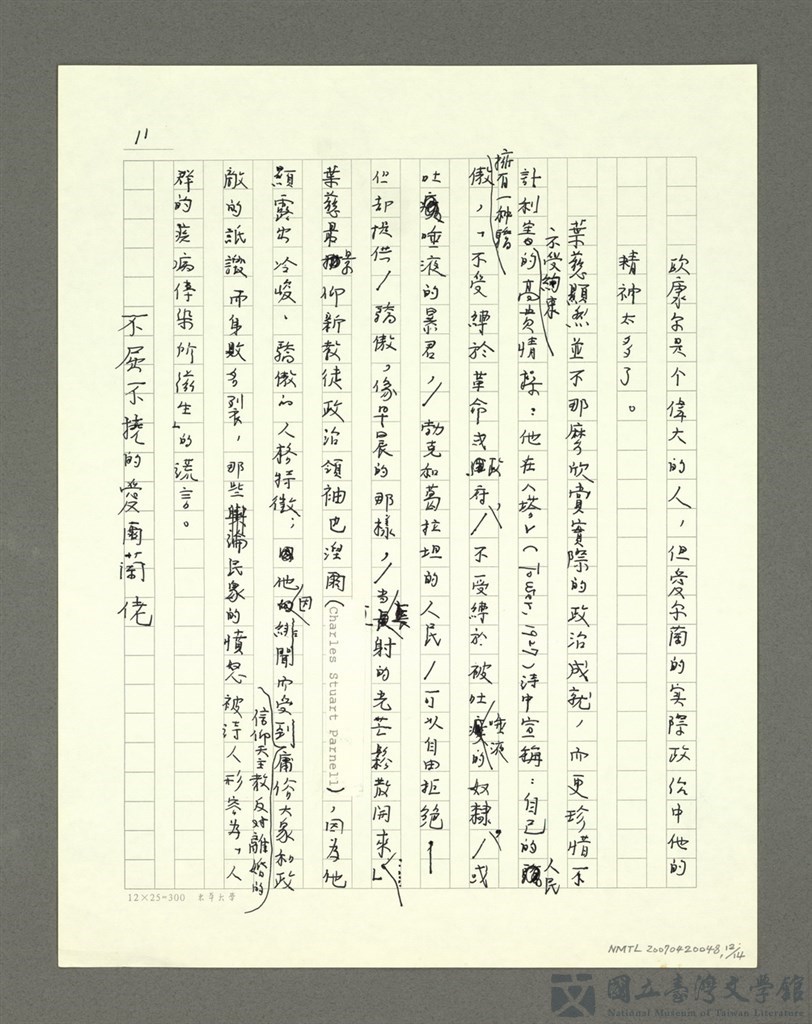 11
歐康尔是个偉大的人，但愛尔蘭的实際政治中他的
精神太多了。
葉慈顯然並不那麼欣賞實際的政治成就，而更珍惜不
不受拘束
計利害的高貴情操：他在《塔》（Tower, 1927）詩中宣稱：自己的
人民
擁有一种驕
傲，「不受縛於革命或政府，/不受縛於被吐的奴隸，/或
唾液
吐唾液的暴君，/勃克和葛拉坦的人民/可以自由拒絕—
但却提供/驕傲，像早晨的那樣，/當射的光芒鬆散開來……」
葉慈最景仰新教徒政治領袖巴涅爾（Charles Stuart Parnell），因為他
顯露出冷峻、驕傲的人格特徵；他因緋聞而受到庸俗大眾和政
敵的詆譭而身敗名裂，那些民眾的憤怒被詩人形容為「人
信仰天主教反对離婚的
群的疾病傳染所滋生」的謊言。
不屈不撓的愛爾蘭佬
12×25=300
NMTL 20070420048, 12/14
國立臺灣文學館
National Museum of Taiwan Literature